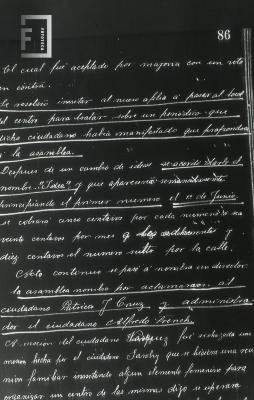 FOTOTECA
86
el cual fué aceptado por mayoria con un voto
en contra.
Se resolvió invitar al nuevo a pasar al local
del centro para tratar sobre un periodico que
dicho ciudadano habia manifestado que
á la asamblea.
Despues de un cambio de ideas se acordó darle el
nombre "Idea" y que apareceria semanalmente
principiando el primer numero el 1º de Junio,
se cobrará cinco centavos por cada numero
veinte centavos por mes y
diez centavos el numero suelto por la calle.
Acto continuo se pasó á nombrar un director.
la asamblea nombró por aclamacion al
ciudadano Patricio J Cruz y administra
dor el ciudadano Alfredo French.
A mocion del ciudadano Marquez fué rechazada una
mocion hecha por el ciudadano que se hiciera una reu
nion familiar invitando algun elemento femenino para
organizar un centro de las mismas dijo se esperara